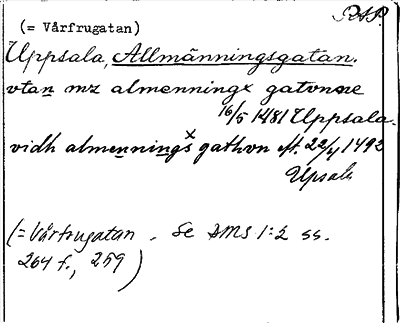 RSP.
(= Vårfrugatan)
Uppsala, Allmänningsgatan.
vtan mz almenningx gatvnne
16/5 1481 Uppsala.
vidh almenningsx gathvn aft. 22/4 1492
Upsala
(= Vårfrugatan. Se DMS 1:2 ss.
264 f., 259)